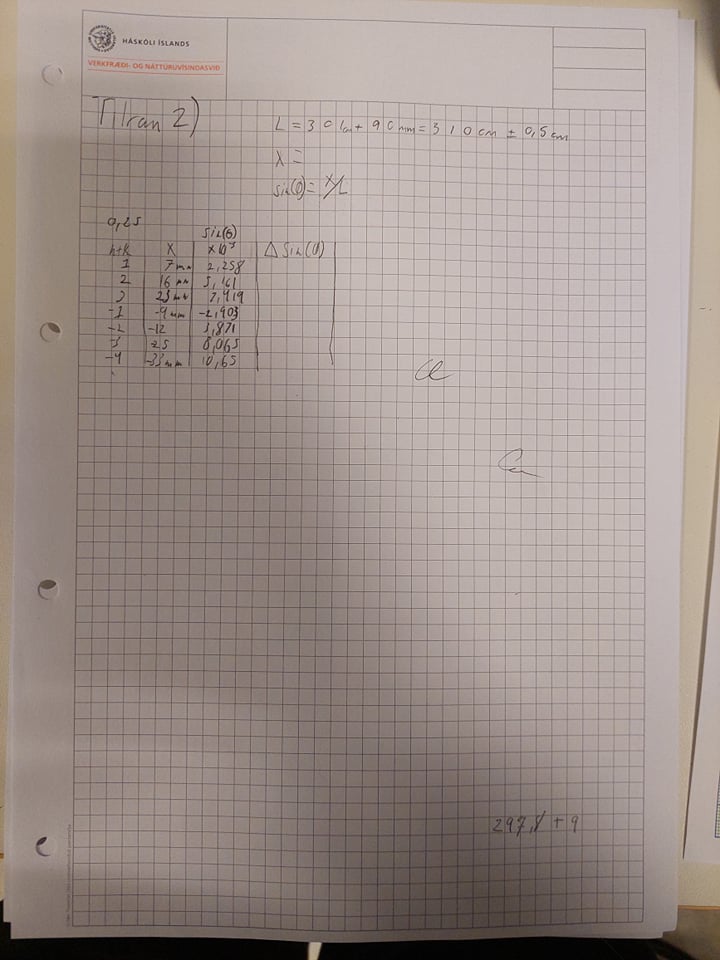 HÁSKÓLI ÍSLANDS
VERKFRÆÐI- OG NÁTTÚRUVÍSINDASVIÐ
Tilraun 2)
L = 301cm + 90mm = 310cm ± 0,5cm
X =
Sin(θ) = X/L
0,25
Sin(θ)
n+k X ×10³ Δ Sin(θ)
1 7mm 2,258
2 16mm 5,161
3 23mm 7,419
-1 -9mm -2,903
-2 -12 3,871
-3 -25 8,065
-4 -33mm 10,65
297,8 + 9